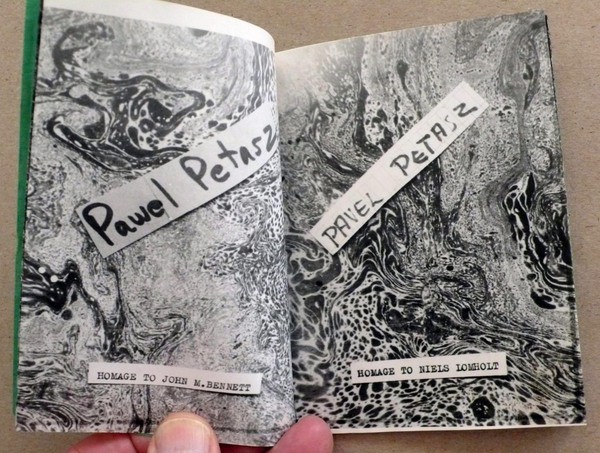 Pawel Petasz
HOMAGE TO JOHN M.BENNETT
PAVEL PETASZ
HOMAGE TO NIELS LOMHOLT